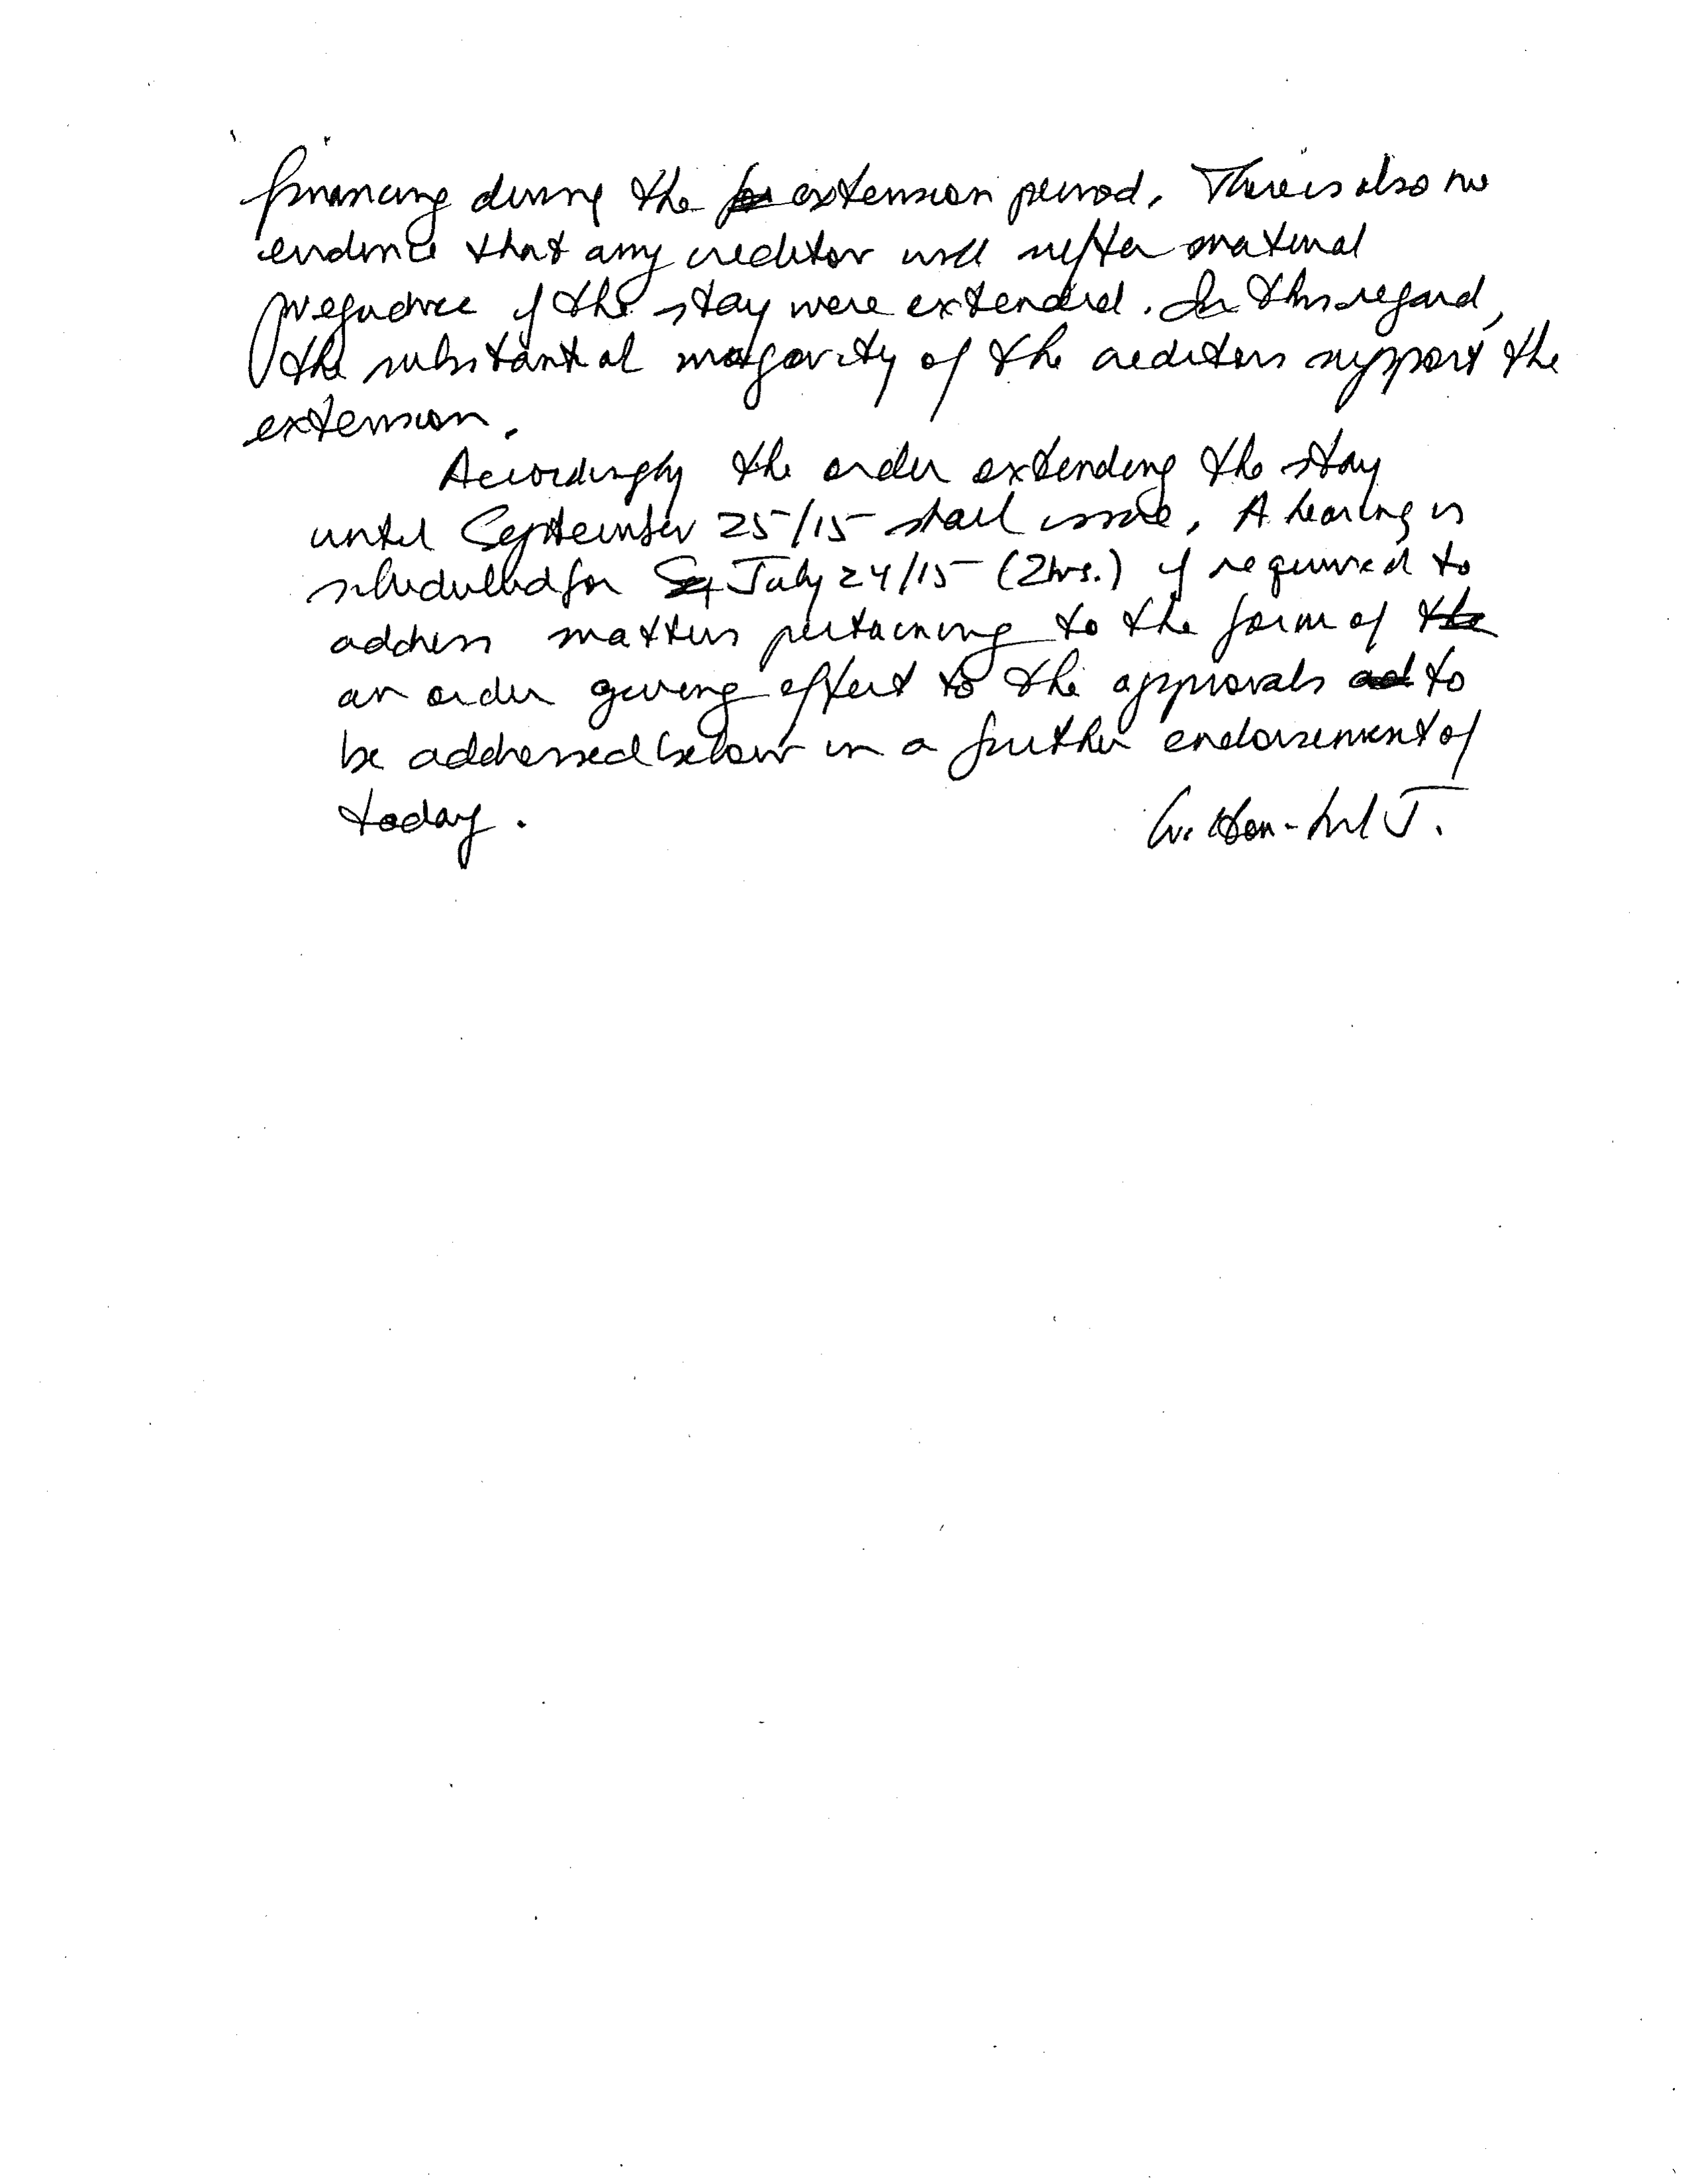 financing during the extension period. There is also no
evidence that any creditor will suffer material
prejudice if the stay were extended. In this regard,
the substantial majority of the creditors support the
extension.
Accordingly the order extending the stay
until September 25/15 shall issue. A hearing is
scheduled for July 24/15 (2hrs.) if required to
address matters pertaining to the form of the
an order giving effect to the approvals to
be addressed below in a further endorsement of
today.
J.